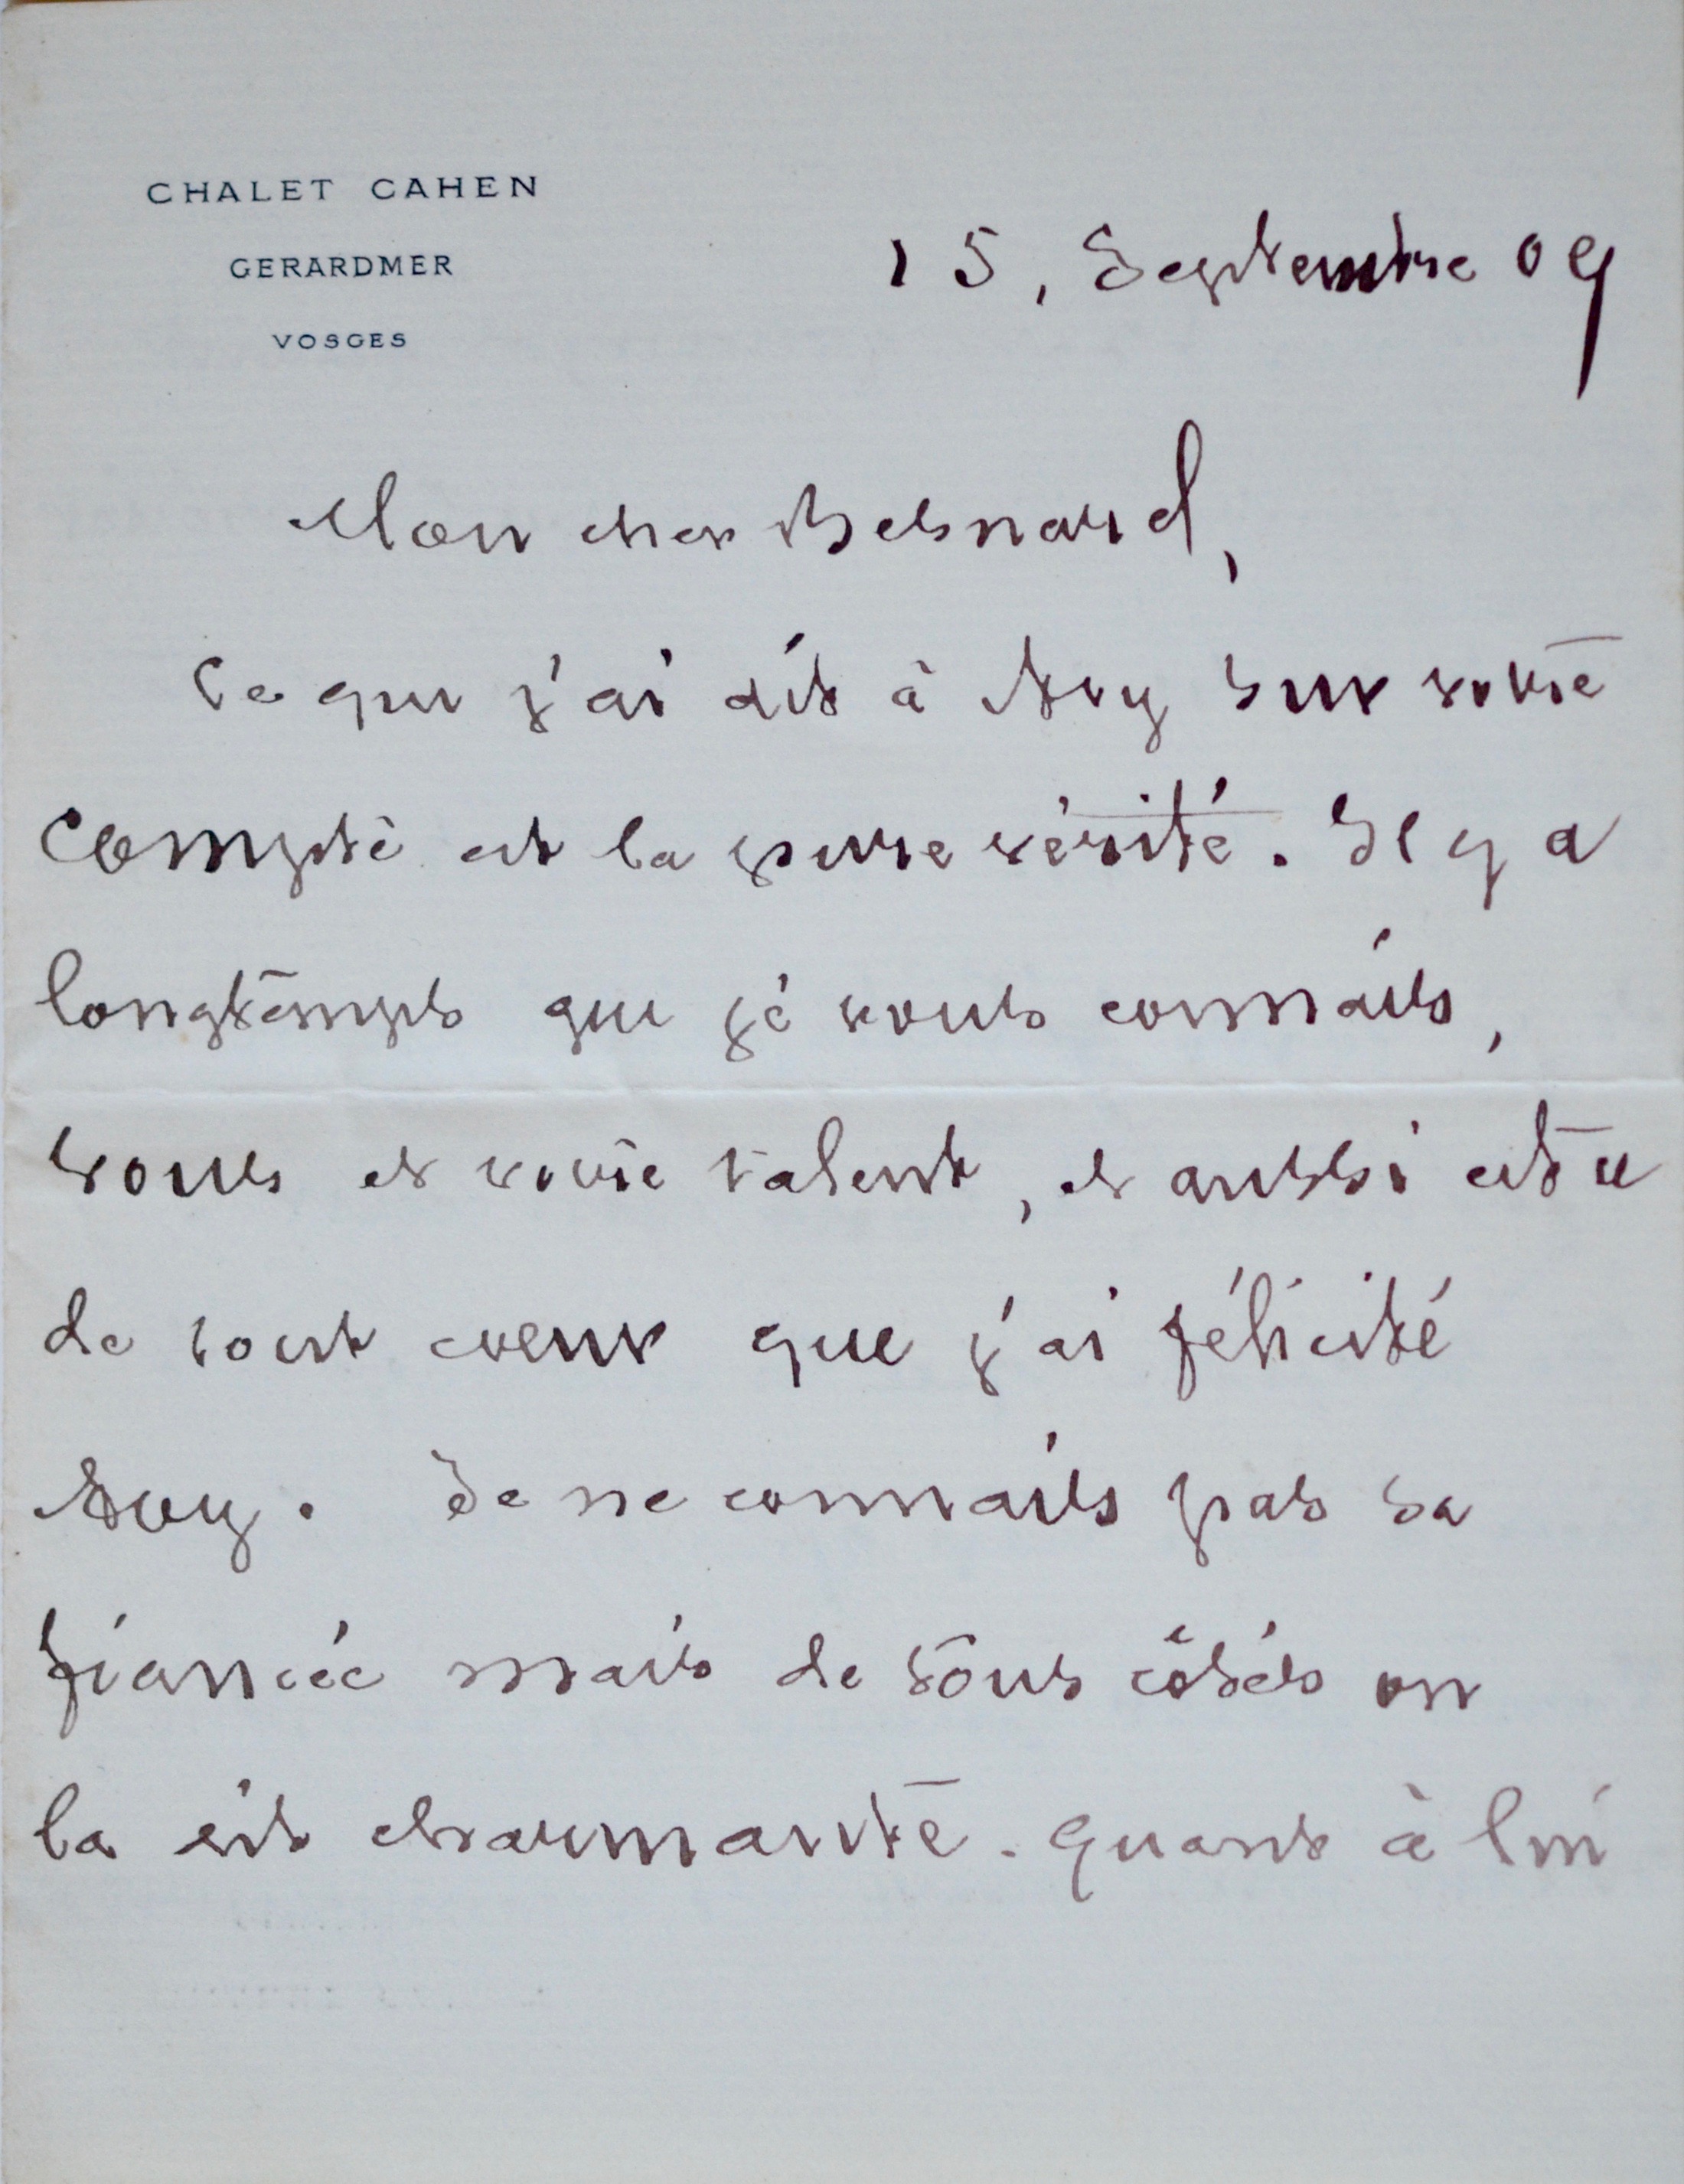 CHALET CAHEN
GERARDMER
VOSGES
15, Septembre 09
Mon cher Besnard,
Ce que j'ai dit à sur votre
compte est la pure vérité. Il y a
longtemps que je vous connais,
vous et votre talent, et aussi est ce
de tout coeur que j'ai félicité
. Je ne connais pas sa
fiancée mais de tous côtés on
la dit charmante. Quant à lui